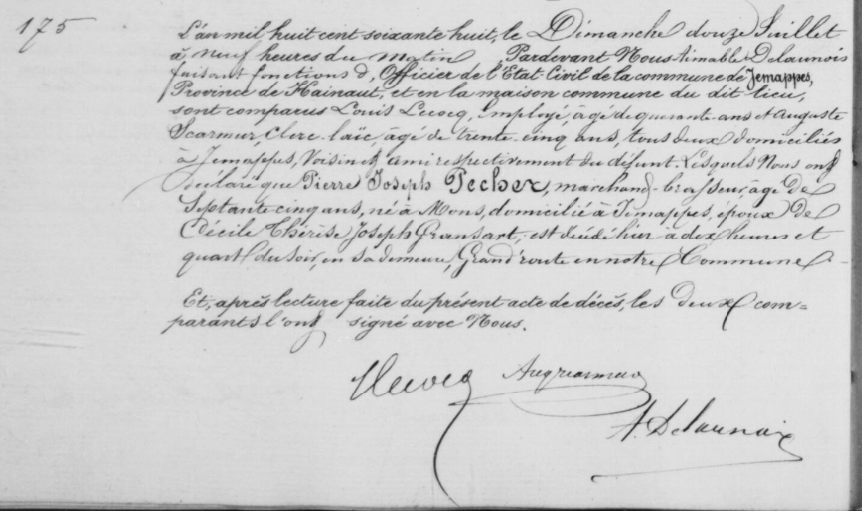 175
L'an mil huit cent soixante huit, le Dimanche douze Juillet
à neuf heures du matin Pardevant Nous Aimable Delaunois
faisant fonctions d'Officier de l'Etat-Civil de la commune de Jemappes,
Province de Hainaut, et en la maison commune du dit lieu,
sont comparus Louis Lecocq, employé, âgé de quarante ans et Auguste
Scarmur, Clerc-laïc, âgé de trente-cinq ans, tous deux domiciliés
à Jemappes, Voisin et ami respectivement du défunt. Lesquels Nous ont
déclaré que Pierre Joseph Pecher, marchand-brasseur, âgé de
Septante cinq ans, né à Mons, domicilié à Jemappes, époux de
Cécile Thérèse Joseph Gransart, est décédé hier à dix heures et
quart du soir, en sa demeure, Grand'route en notre Commune.-
Et, après lecture faite du présent acte de décès, les deux com=
parants l'ont signé avec Nous.
Lecocq Aug Scarmur
A. Delaunois